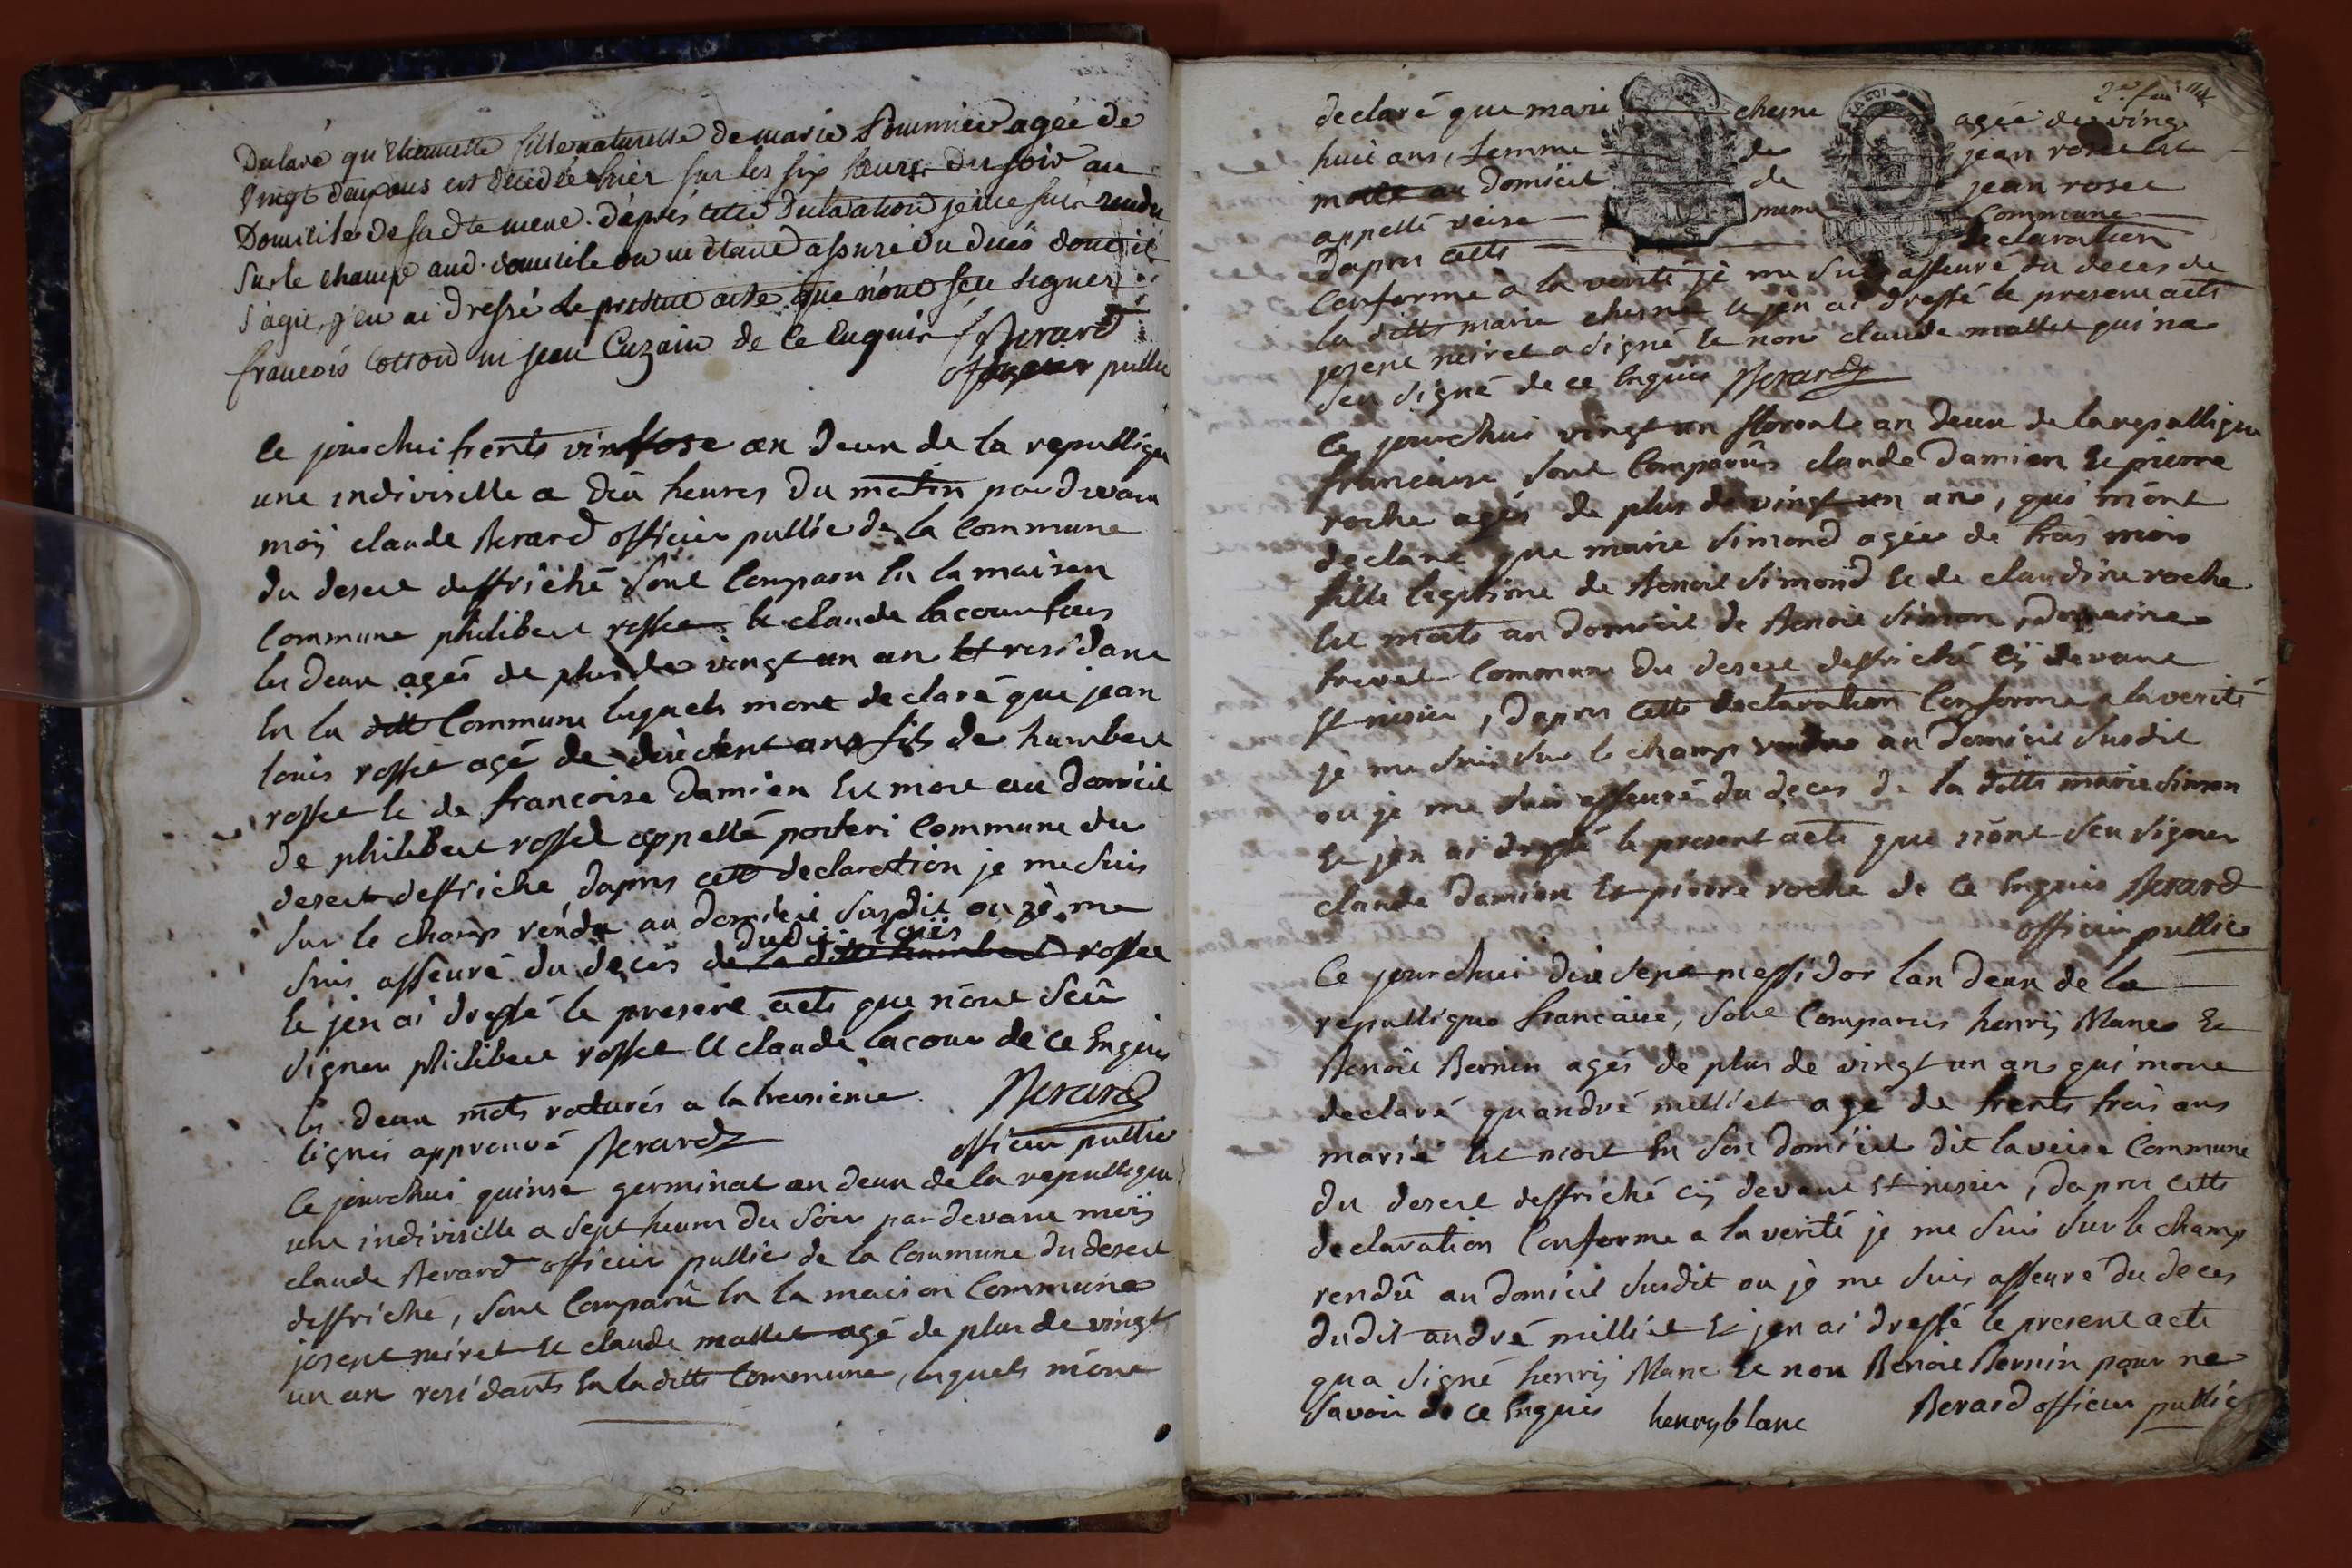 Declaré qu'Etiennette fille naturelle de marie Pounnier agée de
Vingt deux jours est décédée hier sur les six heures du soir au
Domicile de sadte mere. d'après cette Declaration je me suis rendu
Sur le champ aud. domicile ou m'étant assuré du décès dont il
s'agit, j'en ai dressé le présent acte que n'ont seu signer
francois Cotton ni jean Cuzain de ce Enquis Berard
officier public
Ce jourdhui trente vintose an deux de la republique
une indivisille a dix heures du matin pardevan
moÿ claude Berard officier public de la Commune
du desert deffriché sont Comparu En la maison
Commune philibert rosset Et claude lacour tous
les deux agés de plus de vingt un an Et residant
En la ditt Commune lesquels mont declaré que jean
louis rosset agé de dixsept ans fils de humbert
rosset Et de francoise Damien Est mort au domicil
de philibert rosset appellé porteri Commune du
desert deffriche, dapres cett declaration je me suis
sur le champ rendu au domicil susdit ou je me
dudit louis
suis asseuré du deces de la ditt humbert rosset
Et jen ai dressé le present acte que nont seû
signer philibert rosset Et claude lacour de ce Enquis
les deux mots raturés a la treisième Berard
lignes approuvé Berard officier public
Ce jourdhui quinse germinal an deux de la republique
une indivisille a sept heures du soir pardevant moÿ
claude Berard officier public de la Commune du desert
deffriché, sont Comparû En la maison Commune
josent neiret Et claude mallet agé de plus de vingt
un an residants En la ditte Commune, lesquels mont
2e feuillet
declaré que marie chesne agée de vingt
huit ans, femme de jean rosset Est
morte au domicil de jean rosset
appellé veise meme Commune
dapres cette declaration
Conforme a la verité je me suis asseuré du deces de
la ditte marie chesne Et jen ai dressé le present acte
josent neiret a signé Et non claude mallet qui na
seu signé de ce Enquis Berard
Ce jourdhui vingt un floreal an deux de la republique
francaise sont Comparûs claude Damien Et pierre
roche agés de plus de vingt un ans, qui mont
declaré que marie simond agée de trois mois
fille legitime de Benoit simond Et de claudine roche
Est morte au domicil de Benoit simon, domaine
trevet Commune du desert deffriché cÿ devant
st nisier, dapres cette declaration Conforme a la verité
je me suis sur le champ rendu au domicil susdit
ou je me suis asseuré du deces de la ditte marie simon
Et jen ai dressé le present acte que nont seu signer
claude Damien Et pierre roche de ce Enquis Berard
officier public
Ce jourdhui dix sept messidor lan deux de la
republique francaise, sont Comparus henrÿ Blanc Et
Benoit Bernin agés de plus de vingt un an qui mont
declaré quandré milliet agé de trente trois ans
marié Est mort En son domicil dit la veise Commune
du desert deffriché cÿ devant st nisier, dapres cette
declaration Conforme a la verité je me suis sur le champ
rendû au domicil susdit ou je me suis asseuré du deces
dudit andré milliet Et jen ai dressé le present acte
qua signé henrÿ Blanc Et non Benoit Bernin pour ne
savoir de ce Enquis henryblanc Berard officier public